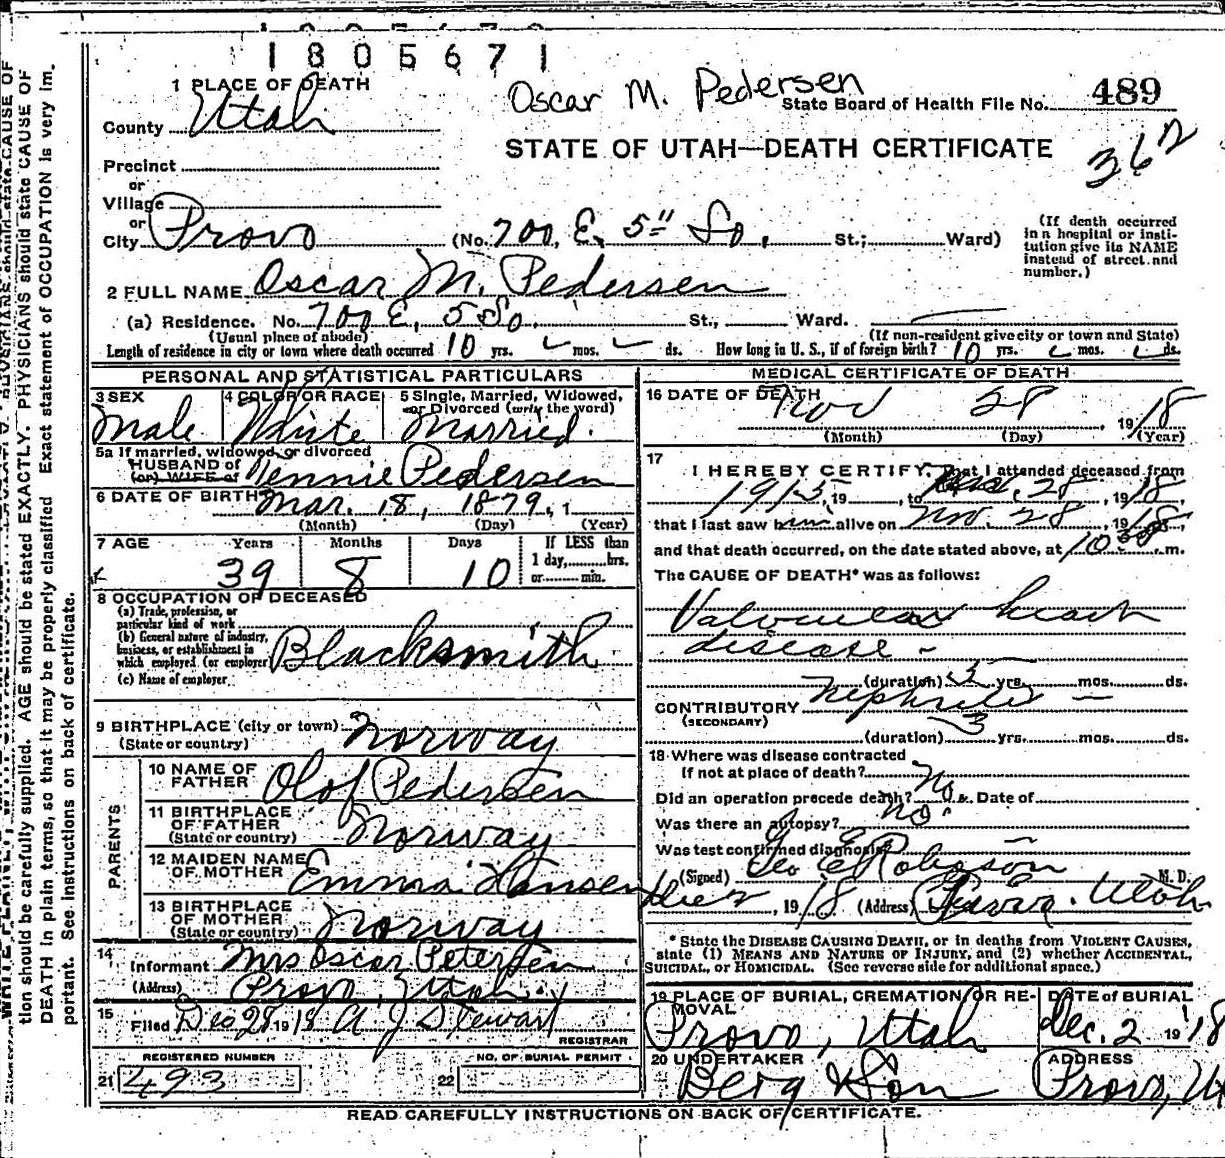 1805671
1 PLACE OF DEATH
Oscar M. Pedersen
State Board of Health File No. 489
County Utah
STATE OF UTAH—DEATH CERTIFICATE
Precinct
or
Village
or
City Provo (No. 700, E, 5" So, St.; Ward)
(If death occurred in a hospital or institution give its NAME instead of street and number.)
2 FULL NAME Oscar M. Pedersen
(a) Residence. No. 700 E, 5 So. St., Ward.
(Usual place of abode) (If non-resident give city or town and State)
Length of residence in city or town where death occurred 10 yrs. mos. ds. How long in U. S., if of foreign birth? 10 yrs. mos. ds.
PERSONAL AND STATISTICAL PARTICULARS
3 SEX Male
4 COLOR OR RACE White
5 Single, Married, Widowed, or Divorced (write the word) Married.
5a If married, widowed, or divorced
HUSBAND of
(or) WIFE of Pedersen
6 DATE OF BIRTH Mar. 18, 1879, 1
(Month) (Day) (Year)
7 AGE Years Months Days If LESS than
39 8 10 1 day, hrs.
or min.
8 OCCUPATION OF DECEASED
(a) Trade, profession, or particular kind of work
(b) General nature of industry, business, or establishment in which employed (or employer) Blacksmith
(c) Name of employer
9 BIRTHPLACE (city or town)
(State or country) Norway
PARENTS
10 NAME OF FATHER Olof Pedersen
11 BIRTHPLACE OF FATHER
(State or country) Norway
12 MAIDEN NAME OF MOTHER Emma Hansen
13 BIRTHPLACE OF MOTHER
(State or country) Norway
14 Informant Mrs Oscar Petersen
(Address) Provo, Utah.
15 Filed Dec 28 1918 A J Stewart
REGISTRAR
REGISTERED NUMBER NO. OF BURIAL PERMIT
21 493 22
MEDICAL CERTIFICATE OF DEATH
16 DATE OF DEATH Nov 28, 1918
(Month) (Day) (Year)
17 I HEREBY CERTIFY, That I attended deceased from
1915, 19 , to 28, 1918,
that I last saw him alive on Nov. 28, 1918,
and that death occurred, on the date stated above, at 10 30 m.
The CAUSE OF DEATH* was as follows:
Valvular heart
disease -
(duration) 5 yrs. mos. ds.
CONTRIBUTORY Nephritis
(SECONDARY)
(duration) 3 yrs. mos. ds.
18 Where was disease contracted
If not at place of death?
Did an operation precede death? No Date of
Was there an autopsy? No.
Was test confirmed diagnosis
(Signed) Geo E Robison M. D.
Dec 2, 1918 (Address) Provo. Utah
* State the DISEASE CAUSING DEATH, or in deaths from VIOLENT CAUSES,
state (1) MEANS AND NATURE OF INJURY, and (2) whether ACCIDENTAL,
SUICIDAL, or HOMICIDAL. (See reverse side for additional space.)
19 PLACE OF BURIAL, CREMATION OR REMOVAL DATE of BURIAL
Provo, Utah Dec. 2 1918
20 UNDERTAKER ADDRESS
Berg & Son Provo, Ut
READ CAREFULLY INSTRUCTIONS ON BACK OF CERTIFICATE.
tion should be carefully supplied. AGE should be stated EXACTLY. PHYSICIANS should state CAUSE OF
DEATH in plain terms, so that it may be properly classified Exact statement of OCCUPATION is very im.
portant. See instructions on back of certificate.